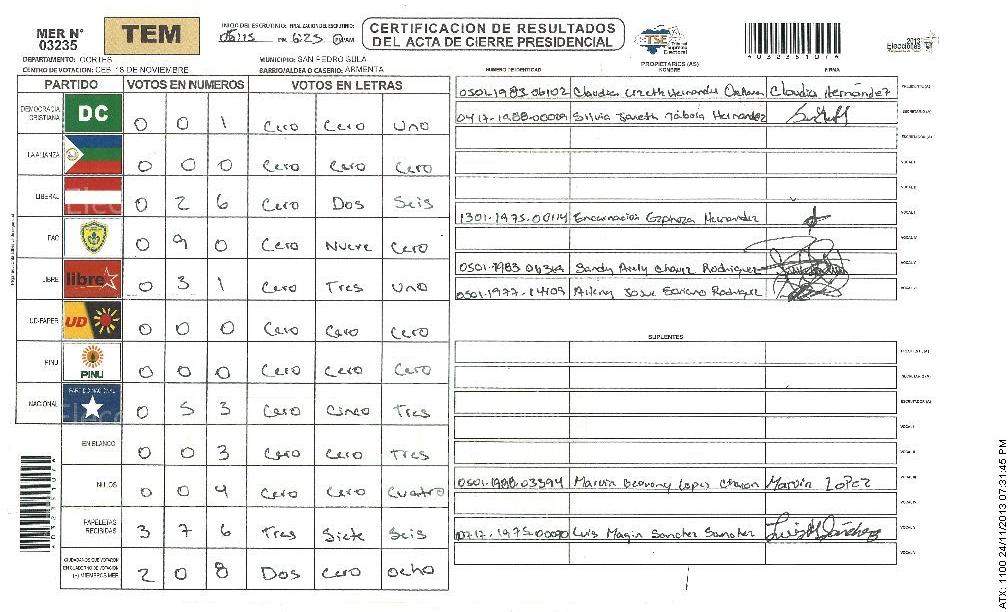 MER N° 03235
TEM
INICIO DEL ESCRUTINIO: FINALIZACION DEL ESCRUTINIO:
PM 6:23 AM
CERTIFICACION DE RESULTADOS
DEL ACTA DE CIERRE PRESIDENCIAL
TSE
Tribunal Supremo Electoral
2013
Elecciones
403235107A
DEPARTAMENTO: CORTES
MUNICIPIO: SAN PEDRO SULA
CENTRO DE VOTACION: CEB 18 DE NOVIEMBRE
BARRIO/ALDEA O CASERIO: ARMENTA
NUMERO DE IDENTIDAD
PROPIETARIOS (AS)
NOMBRE
FIRMA
PARTIDO VOTOS EN NUMEROS VOTOS EN LETRAS
DEMOCRACIA CRISTIANA DC 0 0 1 Cero Cero Uno
LA ALIANZA 0 0 0 Cero Cero Cero
LIBERAL 0 2 6 Cero Dos Seis
PAC 0 9 0 Cero Nueve Cero
LIBRE libre 0 3 1 Cero Tres Uno
UD-FAPER UD 0 0 0 Cero Cero Cero
PINU PINU 0 0 0 Cero Cero Cero
NACIONAL PARTIDO NACIONAL 0 5 3 Cero Cinco Tres
EN BLANCO 0 0 3 Cero Cero Tres
NULOS 0 0 4 Cero Cero Cuatro
PAPELETAS RECIBIDAS 3 7 6 Tres Siete Seis
CIUDADANOS QUE VOTARON EN CUADERNO DE VOTACION (+) MIEMBROS MER 2 0 8 Dos Cero Ocho
0501-1983-06102 Claudia Lizeth Hernandez Claudia Hernandez PRESIDENTE (A)
0417-1988-00029 Silvia Janeth Tabora Hernandez SECRETARIO (A)
ESCRUTADOR (A)
VOCAL I
VOCAL II
1301-1975-00114 Encarnacion Espinoza Hernandez
VOCAL IV
Sandy Arely Chavez Rodriguez VOCAL V
0501-1977-14109 Josue Soriano Rodriguez
SUPLENTES
PRESIDENTE (A)
SECRETARIO (A)
ESCRUTADOR (A)
VOCAL I
VOCAL II
0501-1988-03394 Marvin Lopez Marvin Lopez VOCAL III
VOCAL IV
Luis Magin Sanchez Sanchez VOCAL V
403235107A
ATX: 1100 24/11/2013 07:31:45 PM